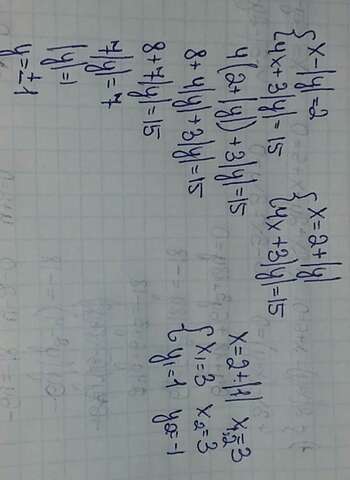 {x-|y|=2
{4x+3|y|=15
{x=2+|y|
{4x+3|y|=15
4(2+|y|)+3|y|=15
8+4|y|+3|y|=15
8+7|y|=15
7|y|=7
|y|=1
y=±1
x=2+|1| x₁,₂=3
{x₁=3 x₂=3
{y₁=1 y₂=-1